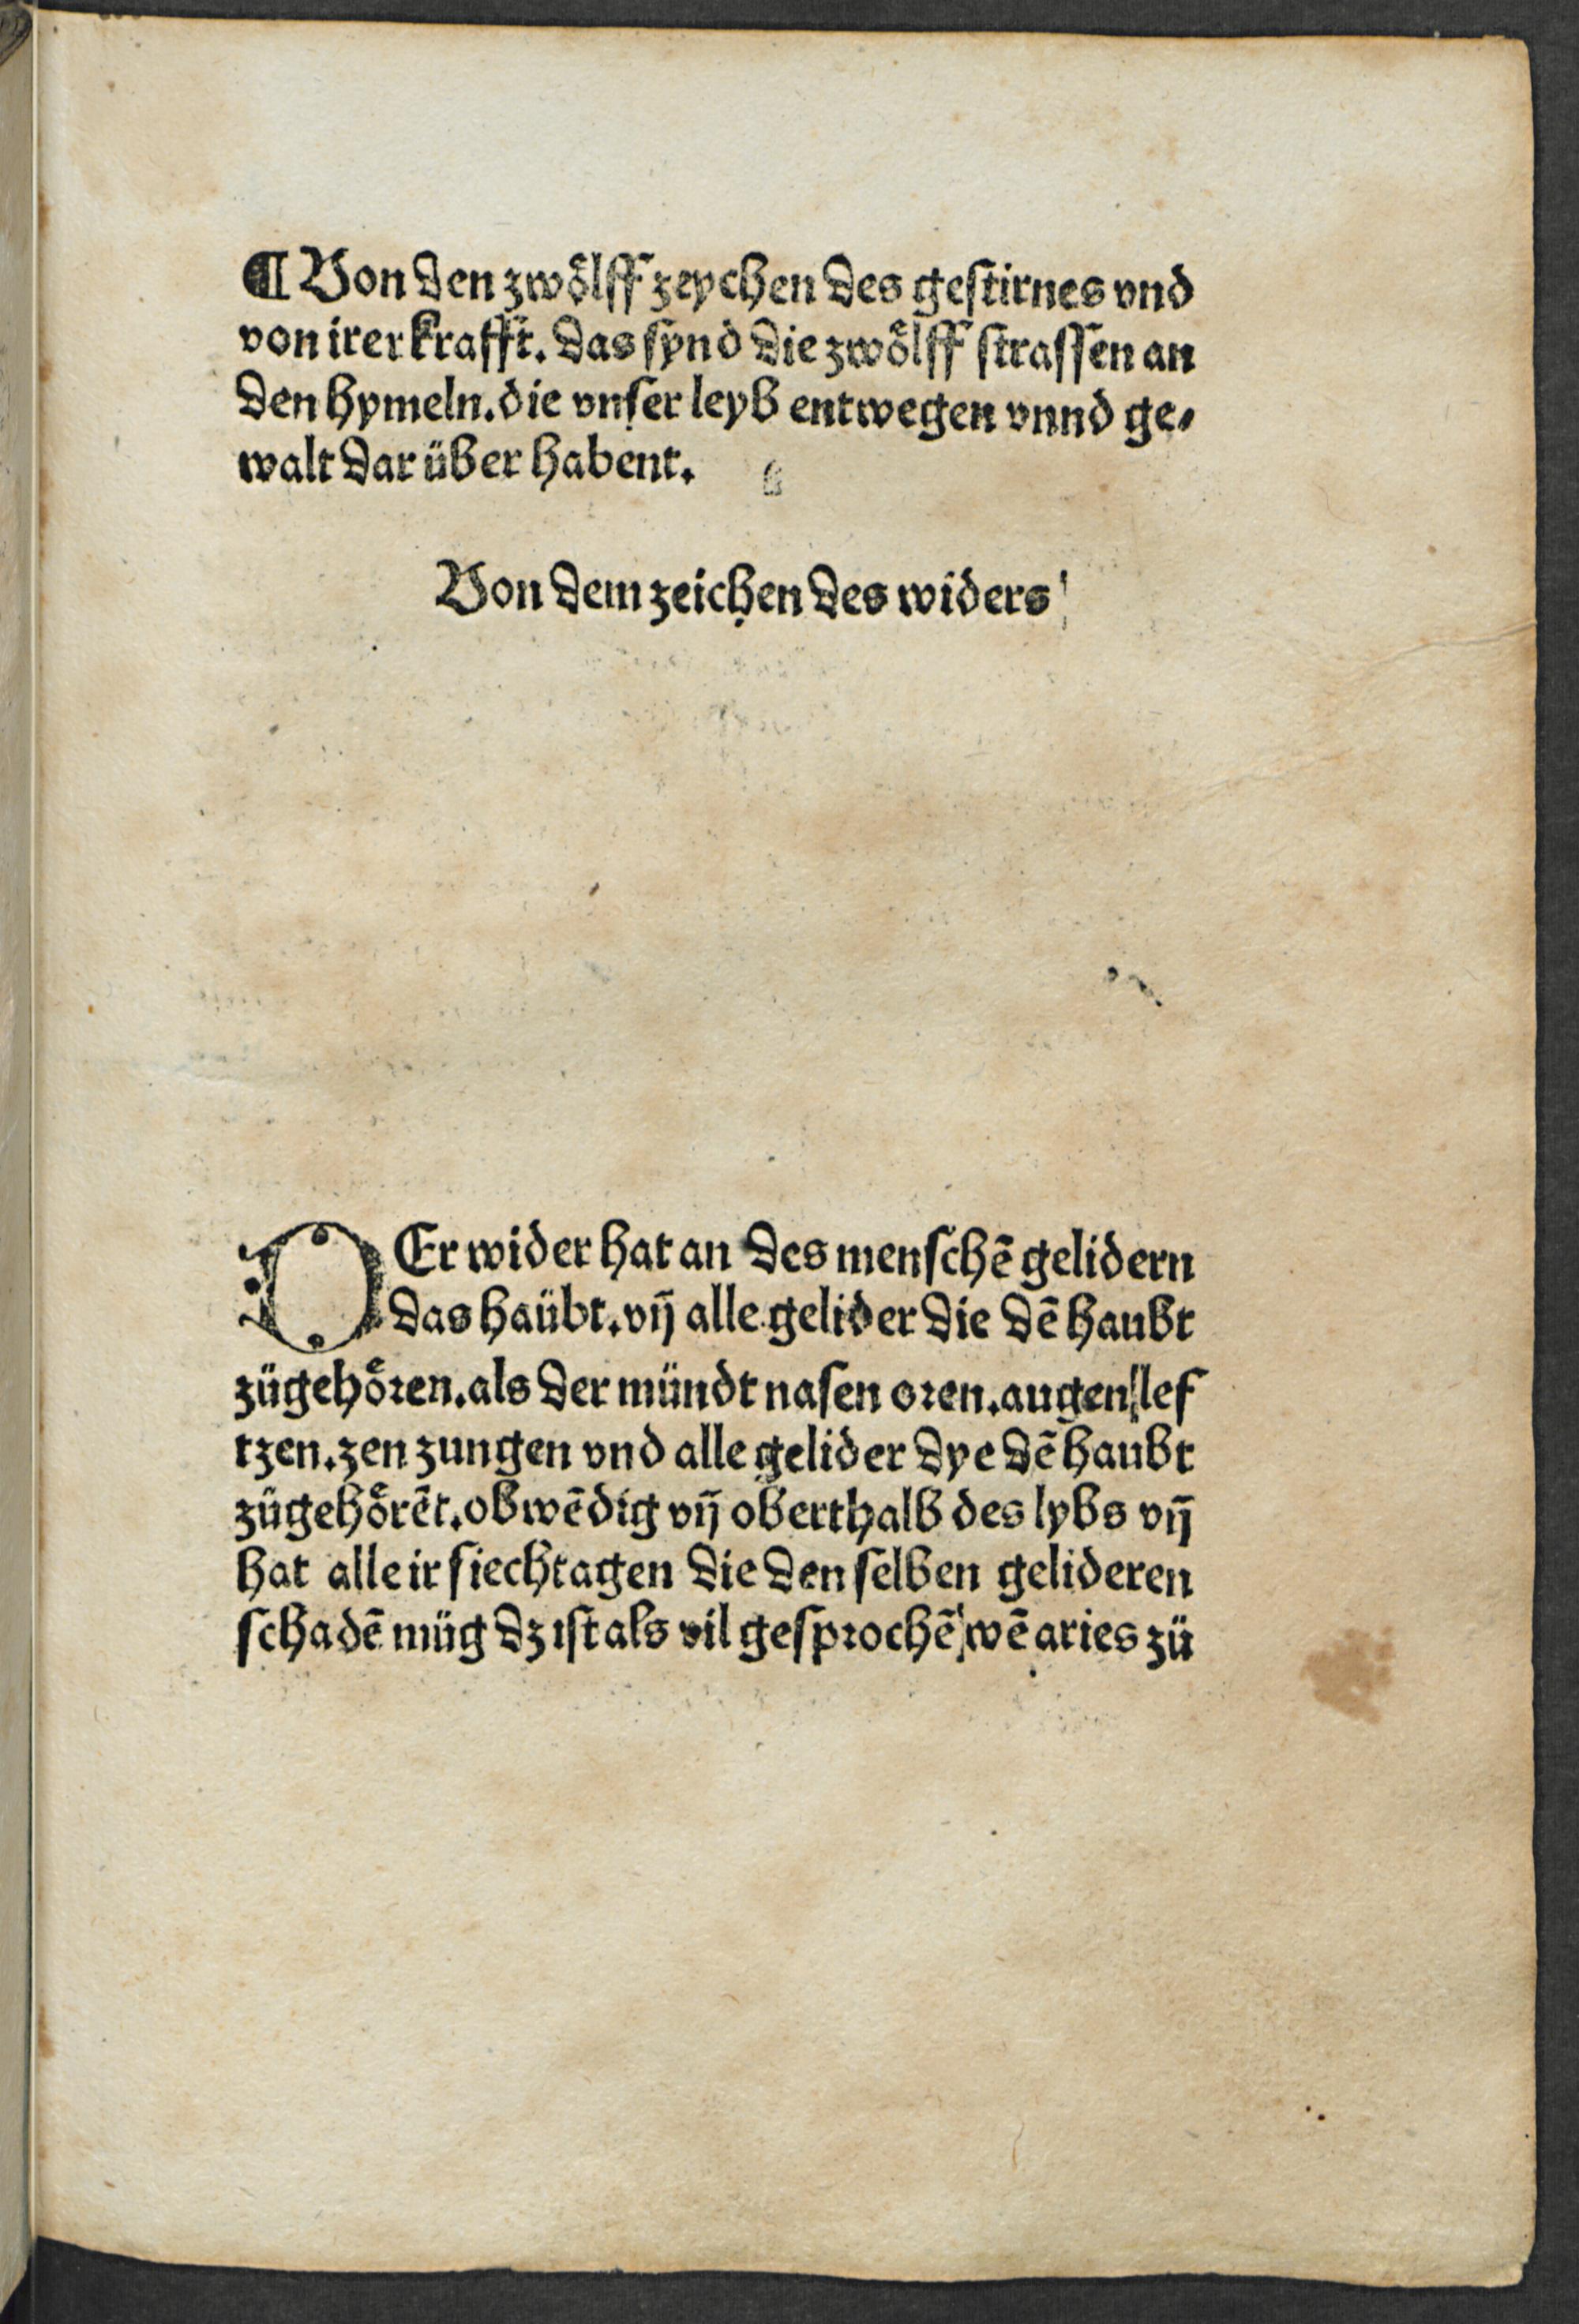 ¶ Von den zwoͤlff zeychen des geſtirnes vnd
von irer krafft. das ſynd die zwoͤlff ſtraſſen an
den hymeln. die vnſer leyb entwegen vnnd ge⸗
walt dar über habent.
Von dem zeichen des widers
DEr wider hat an des menſchē gelidern
das haübt. vñ alle gelider die dē haubt
zügehoͤꝛen. als der mündt naſen oꝛen. augen lef
tzen. zen zungen vnd alle gelider dye dē haubt
zügehoͤrēt. obwēdig vñ oberthalb des lybs vñ
hat alle ir ſiechtagen die den ſelben gelideren
ſchadē müg dz iſt als vil geſpꝛochē wē aries zü